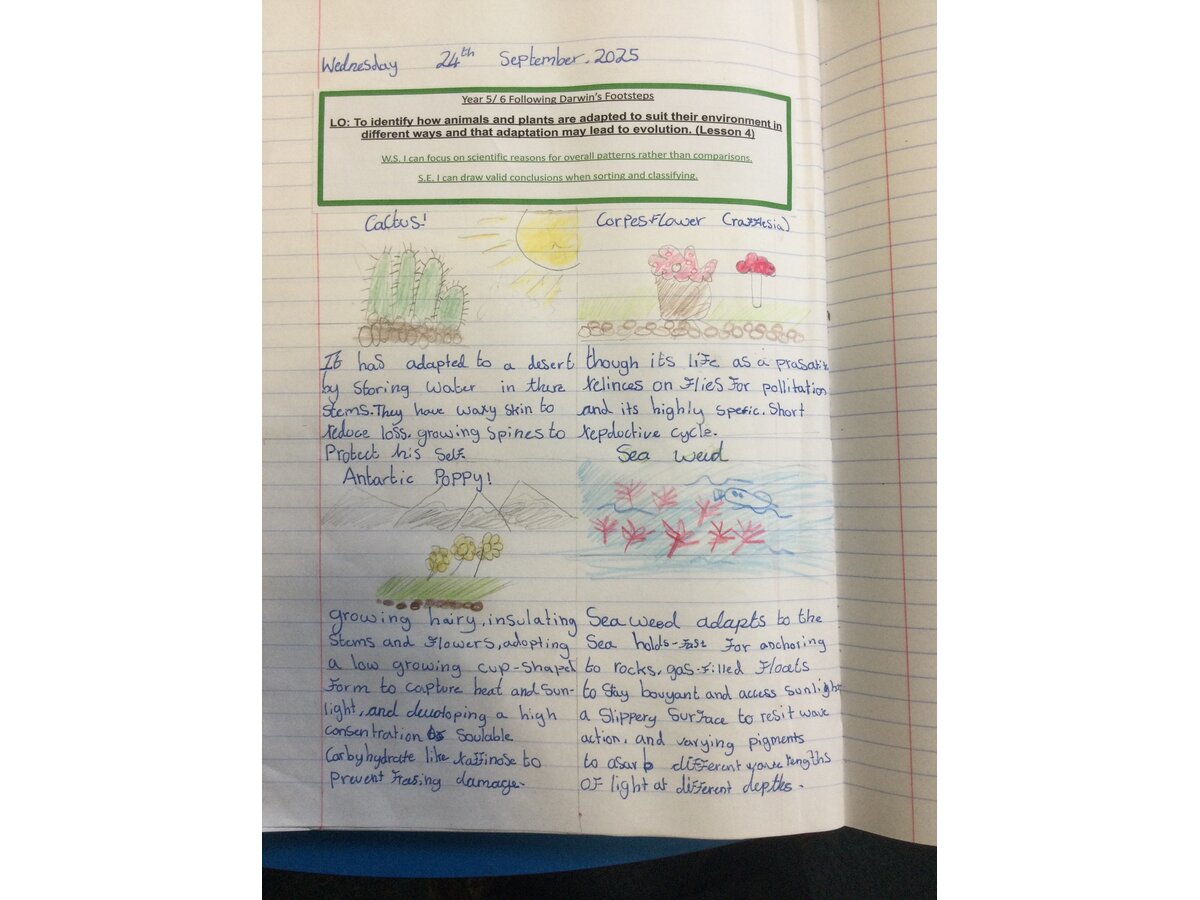 Wednesday 24th September. 2025
Year 5/ 6 Following Darwin's Footsteps
LO: To identify how animals and plants are adapted to suit their environment in
different ways and that adaptation may lead to evolution. (Lesson 4)
W.S. I can focus on scientific reasons for overall patterns rather than comparisons.
S.E. I can draw valid conclusions when sorting and classifying.
Cactus!
It has adapted to a desert
by storing water in there
stems. They have waxy skin to
reduce loss. growing spines to
Protect his self.
Corpesflower (rafflesia)
though its life as a prasatic
relinces on flies for pollitation
and its highly spesic. Short
repductive cycle.
Antartic Poppy!
growing hairy, insulating
stems and flowers, adopting
a low growing cup-shaped
form to capture heat and sun-
light, and devoloping a high
consentration of Soulable
Carbyhydrate like raffinose to
prevent frasing damage.
Sea weed
Sea weed adapts to the
Sea holds-fast for anchoring
to rocks, gas-filled floats
to stay bouyant and access sunlight
a slippery surface to resit wave
action, and varying pigments
to asarb different wavelengths
of light at different depths.